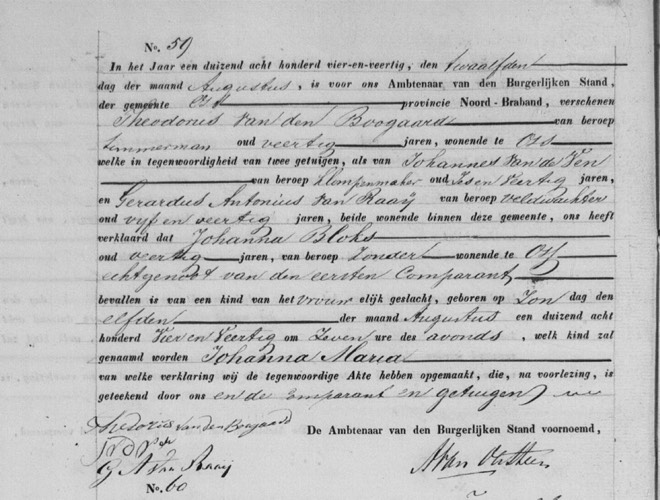 No. 59
In het Jaar een duizend acht honderd vier-en-veertig, den twaalfden
dag der maand Augustus, is voor ons Ambtenaar van den Burgerlijken Stand,
der gemeente Oss provincie Noord-Braband, verschenen
Theodorus van den Boogaard van beroep
timmerman oud veertig jaren, wonende te Oss
welke in tegenwoordigheid van twee getuigen, als van Johannes van de Ven
van beroep klompenmaker oud Zes en Veertig jaren,
en Gerardus Antonius van Raaij van beroep veldwachter
oud vyf en veertig jaren, beide wonende binnen deze gemeente, ons heeft
verklaard dat Johanna Bloks
oud veertig jaren, van beroep Zonder wonende te Oss
echtgenoot van den eersten Comparant
bevallen is van een kind van het vrouwelijk geslacht, geboren op Zondag den
elfden der maand Augustus een duizend acht
honderd Vier en Veertig om Zeven ure des avonds, welk kind zal
genaamd worden Johanna Maria
van welke verklaring wij de tegenwoordige Akte hebben opgemaakt, die, na voorlezing, is
geteekend door ons en de Comparant en getuigen
van den Boogaard
De Ambtenaar van den Burgerlijken Stand voornoemd,
G A van Raaij
No. 60